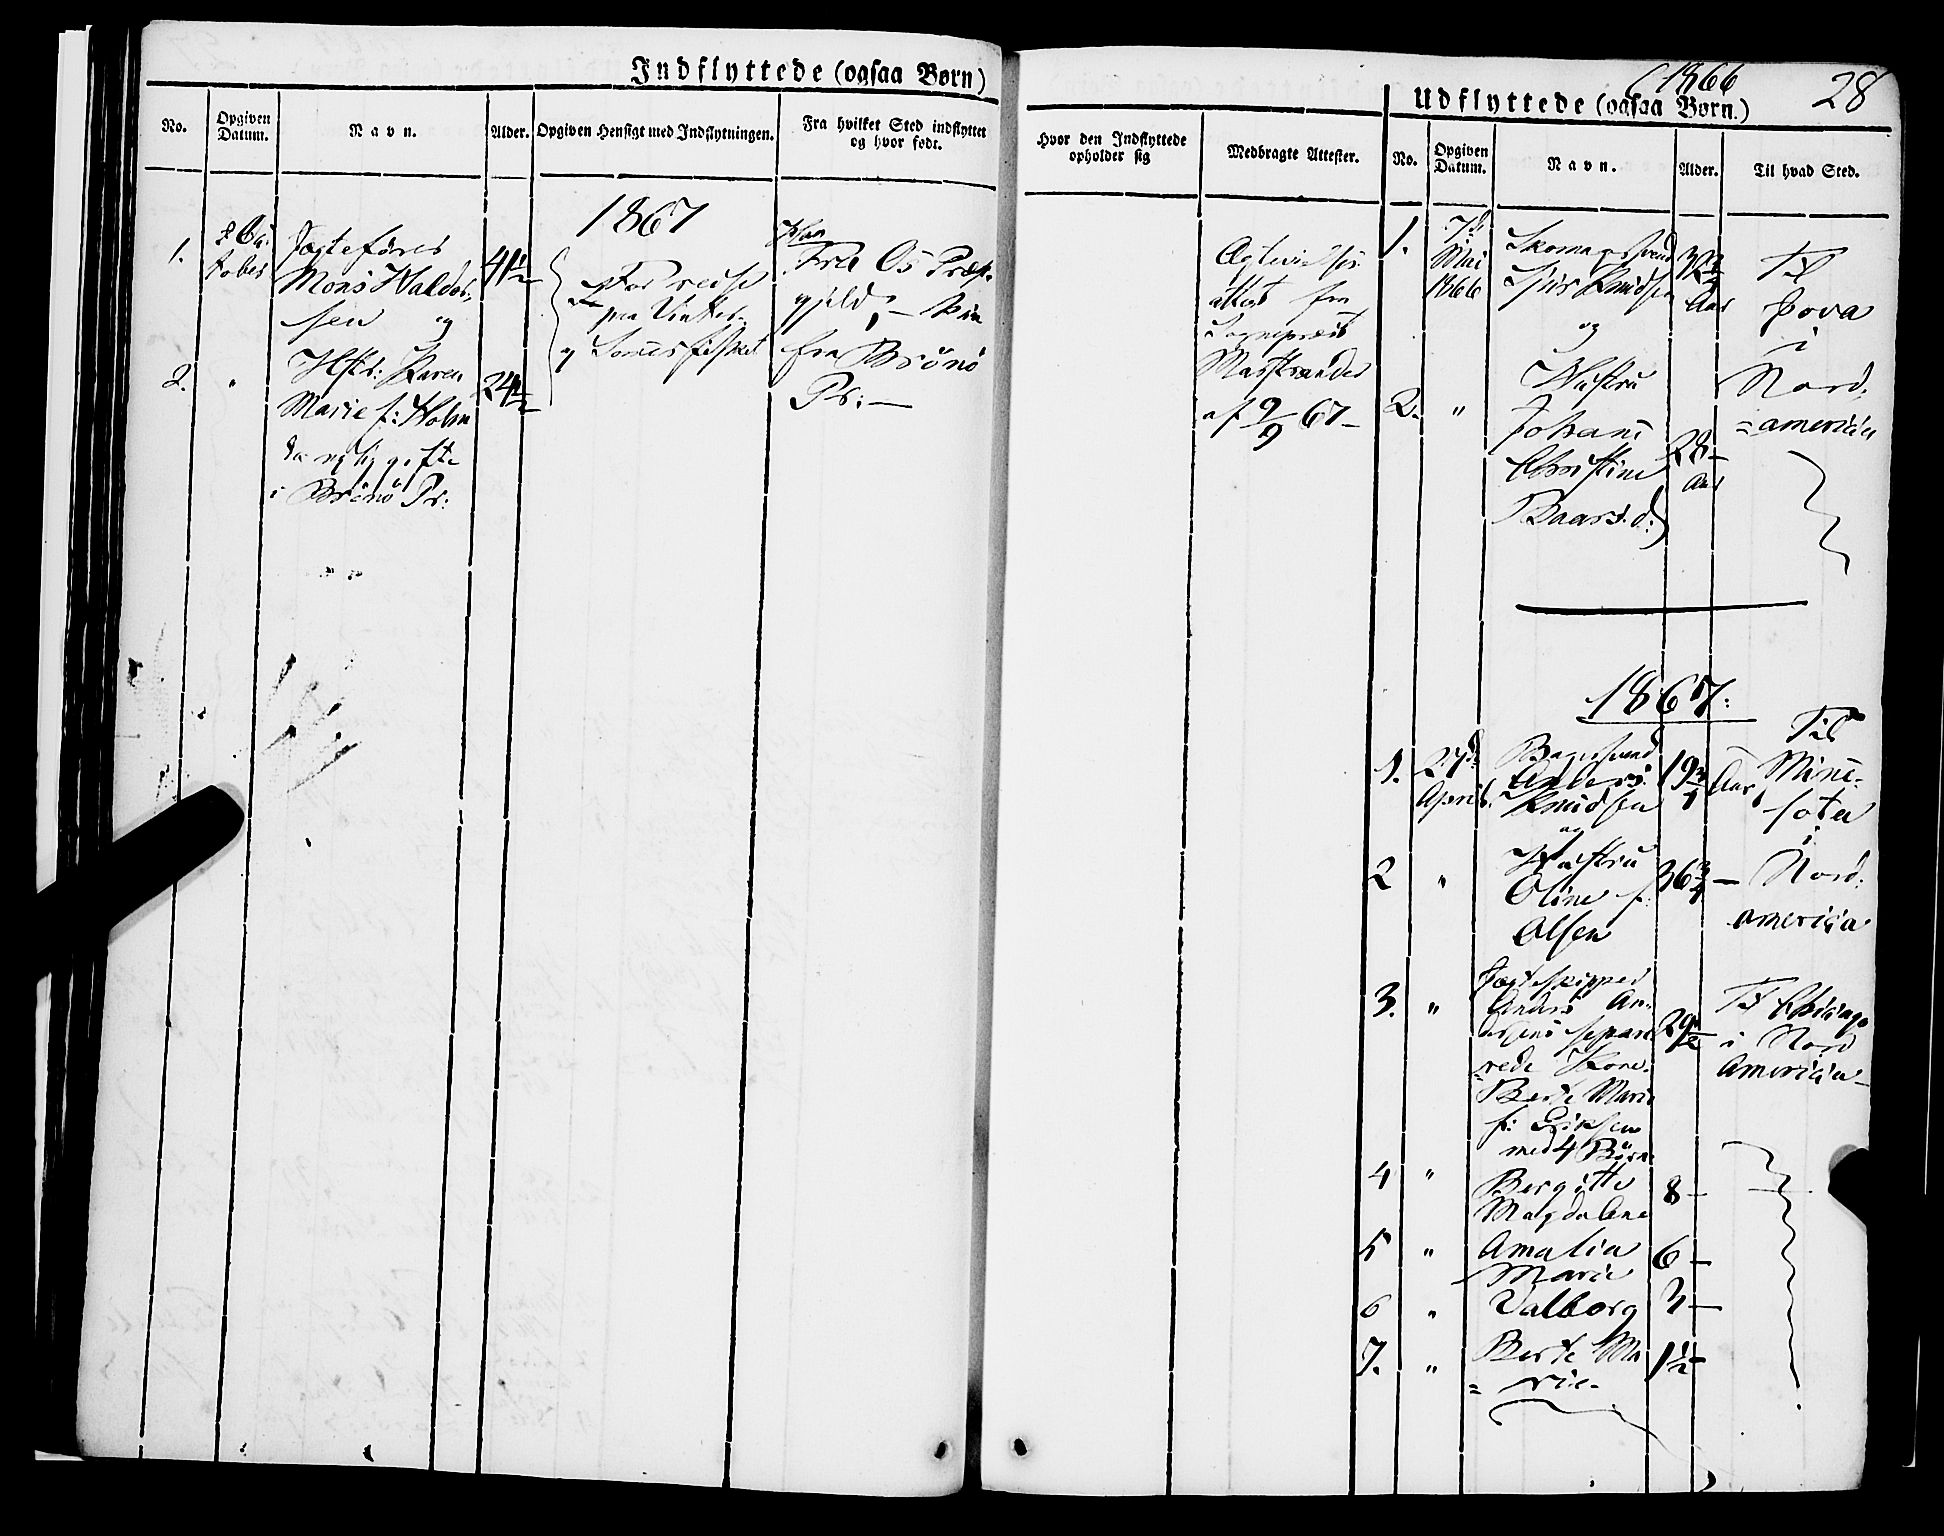 Indflyttede (ogsaa Børn)
No.
Opgiven Datum.
Navn.
Alder.
Opgiven Hensigt med Indflytningen.
Fra hvilket Sted indflyttet
og hvor født.
1867
1.
tober
Jagtefører
Mons Haldor-
sen og
41½
For reise
paa Vinter-
og Sommerfisket
Han
Fra Os Præste-
gjeld, —
fra Brönö
Pr: —
2.
"
Hstr: Karen
Marie f: Holm
24½
i Brönö Pr:
1866
28
Hvor den Indflyttede
opholder sig
Medbragte Attester.
attest fra
Sognepræst
af 9/9 67 —
Udflyttede (ogsaa Børn.)
No.
Opgiven Datum.
Navn.
Alder.
Til hvad Sted.
1.
7de
Mai
1866
Knudsen
og
Aar
Til
Jova
i
Nord-
=america
2.
"
Hustru
Christine
Baarsd:
28 —
Aar
1867:
1.
27de
April
Anders
Knudsen
og
19¾
Aar
Til
Mine-
sota
i
Nord-
america
2
"
Hustru
Oline f:
Olsen
36¾ —
3.
"
Jagteskipper
Anders An-
dersens separe-
rede Kone
Berte Marie
f: Eriksen
med 4 Börn
29½
Til Chicago
i Nord
America —
4
"
Bergitte
Magdalene
8 —
5
"
Amalia
Marie
6 —
6
"
Valborg
3 —
7.
"
Berte Ma
= rie.
1½ —